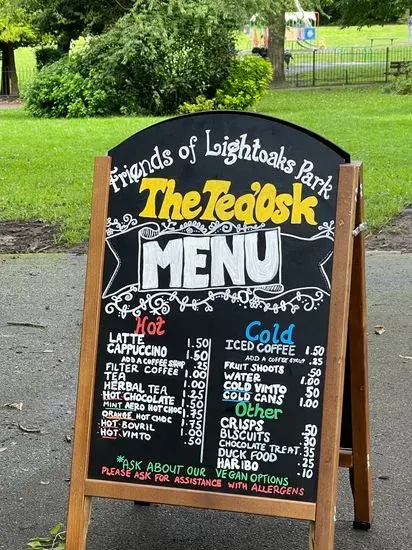 Friends of Lightoaks Park
The Tea'Osk
MENU
Hot
LATTE 1.50
CAPPUCCINO 1.50
ADD A COFFEE SYRUP .25
FILTER COFFEE 1.00
TEA 1.00
HERBAL TEA 1.25
HOT CHOCOLATE 1.50
MINT AERO HOT CHOC 1.75
ORANGE HOT CHOC 1.75
HOT BOVRIL 1.00
HOT VIMTO 1.50
Cold
ICED COFFEE 1.50
ADD A COFFEE SYRUP .25
FRUIT SHOOTS .50
WATER 1.00
COLD VIMTO .50
COLD CANS 1.00
Other
CRISPS .50
BISCUITS .30
CHOCOLATE TREAT .35
DUCK FOOD .25
HARIBO .10
*ASK ABOUT OUR VEGAN OPTIONS
PLEASE ASK FOR ASSISTANCE WITH ALLERGENS